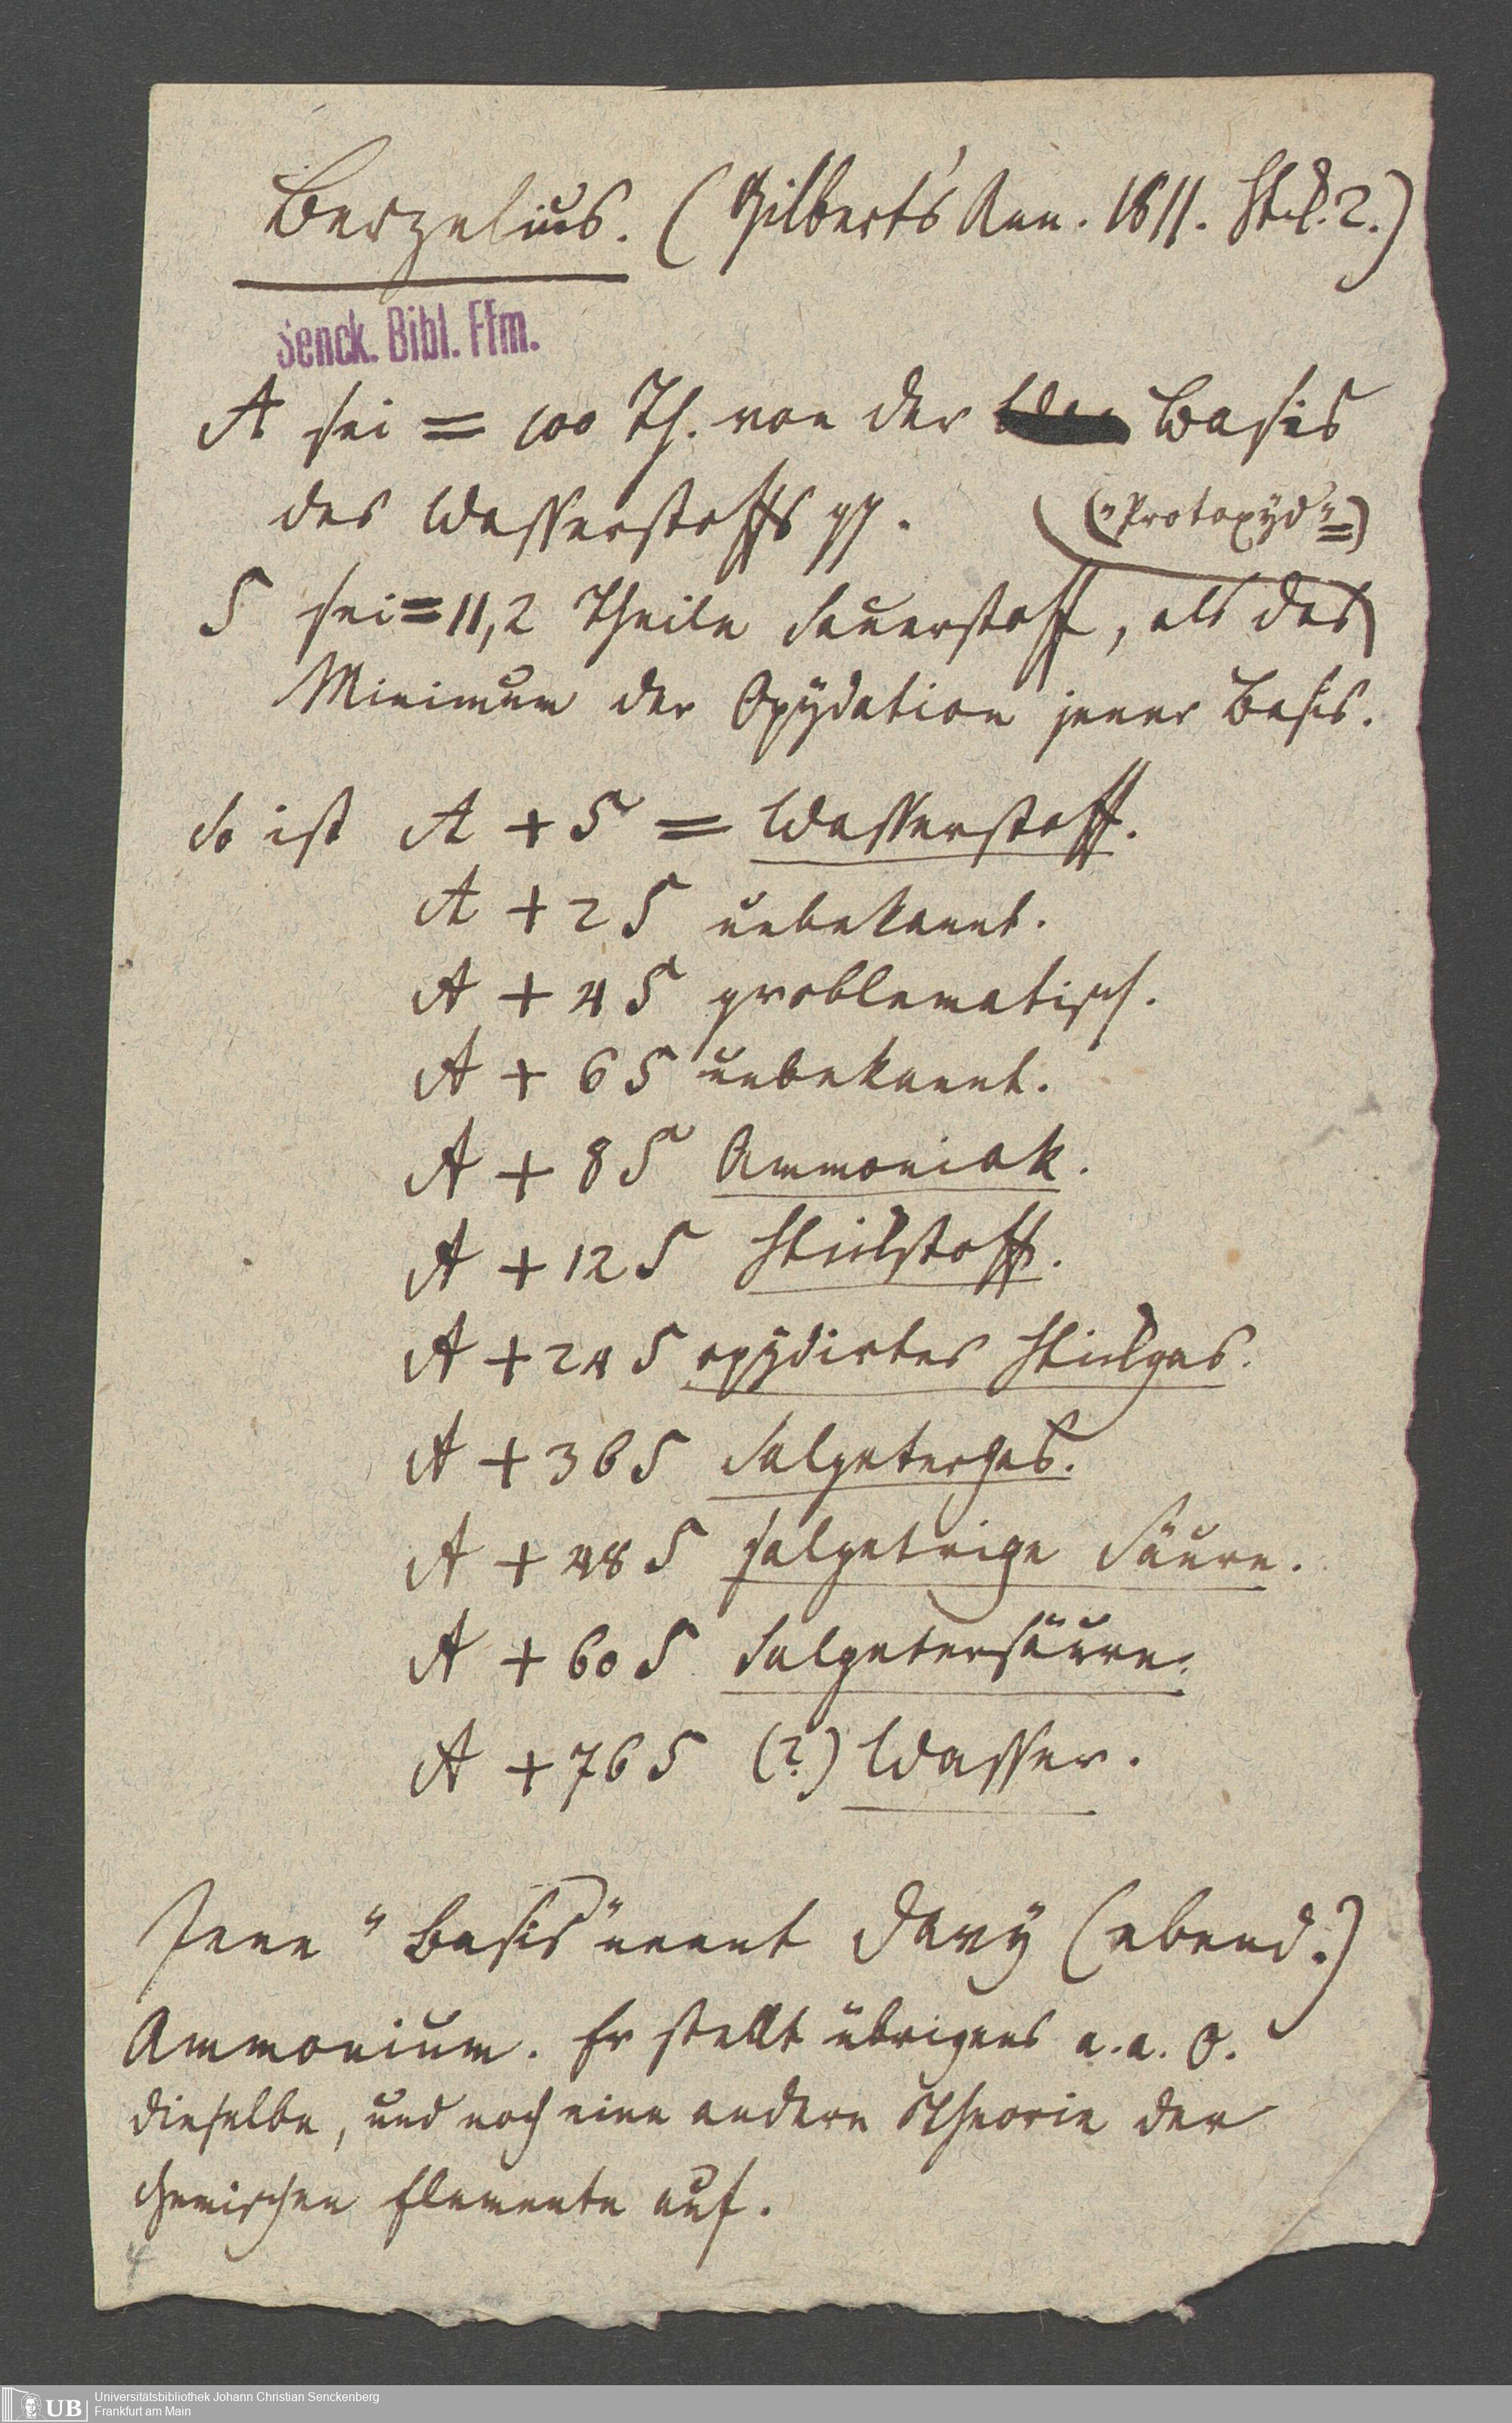 Berzelius. (Gilbert's Ann. 1811. Stck. 2.)
Senck. Bibl. Ffm.
A sei = 100 Th. von der Basis
des Wasserstoffs pp. („Protoxyd“)
S sei = 11,2 Theile Sauerstoff, als das
Minimum der Oxÿdation jener Basis.
So ist A + S = Wasserstoff.
A + 2 S unbekannt.
A + 4 S problematisch.
A + 6 S unbekannt.
A + 8 S Ammoniak.
A + 12 S Stickstoff.
A + 24 S oxÿdirtes Stickgas.
A + 36 S Salpetergas.
A + 48 S salpetrige Säure.
A + 60 S Salpetersäure.
A + 76 S (?) Wasser.
Jene "Basis" nennt Davÿ (ebend.)
Ammonium. Er stellt übrigens a. a. O.
dieselbe, und noch eine andere Theorie der
chemischen Elemente auf.
4
UB
Universitätsbibliothek Johann Christian Senckenberg
Frankfurt am Main